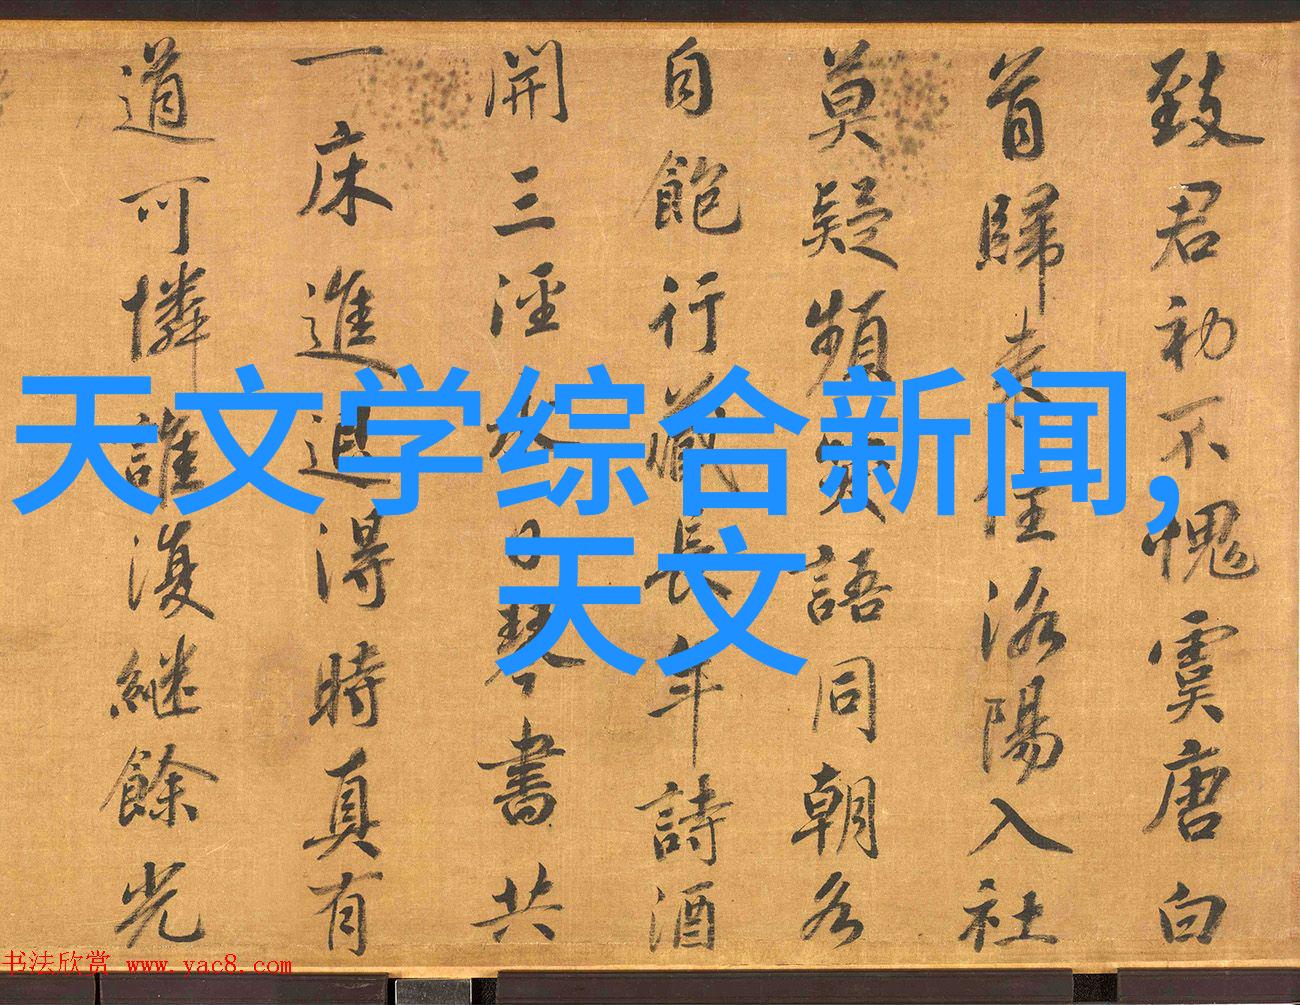 天文学综合新闻,
天文
致君初不愧虞唐白
首歸来洛陽入社
莫疑頻語同朝各
自飽行藏長年詩酒
開三逕日琴書共
一床進退得時真有
道可憐誰復継餘光
书法欣赏 www.yac8.com